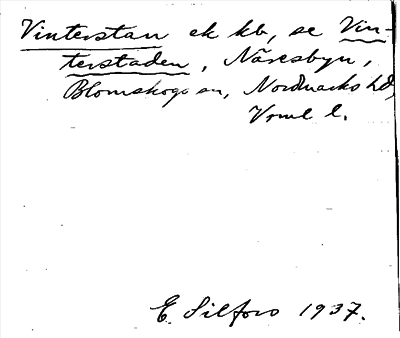 Vinterstan ek kb, se Vin-
terstaden, Näresbyn,
Blomskogs sn, Nordmarks hd,
Vrml l.
E. Silfors 1937.